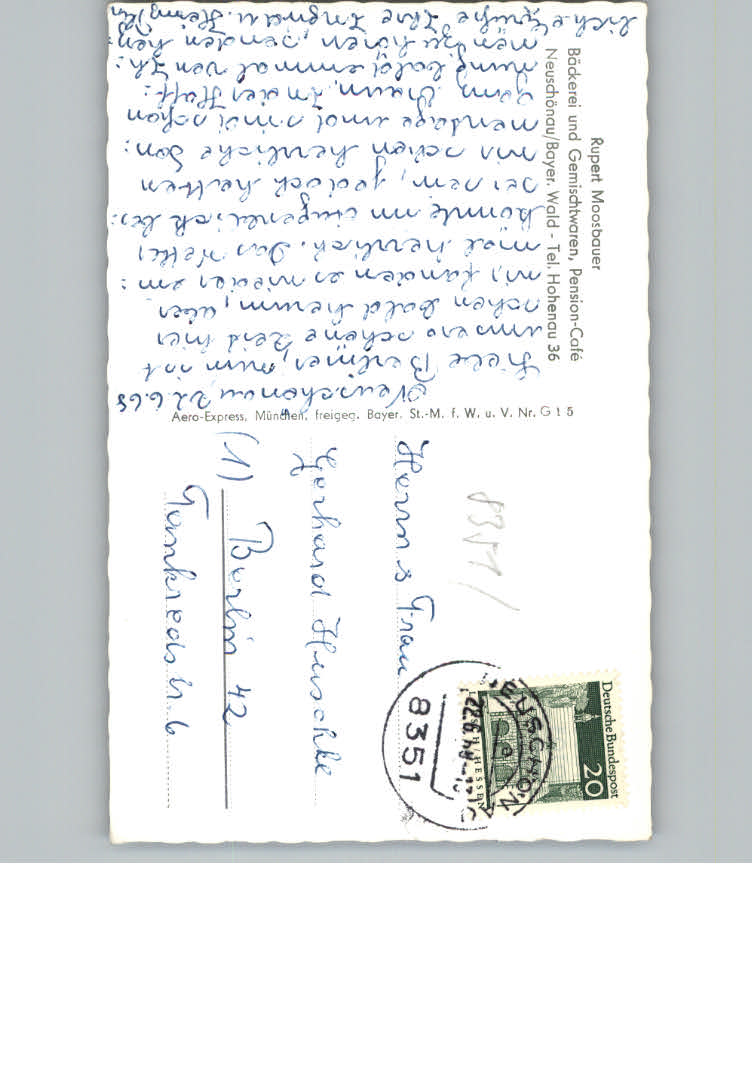 Rupert Moosbauer
Bäckerei und Gemischtwaren, Pension-Café
Neuschönau/Bayer. Wald - Tel. Hohenau 36
Neuschönau, 22.6.68
Liebe Berliner, nun ist
unsere schöne Zeit hier
schon bald herum, aber
wir fanden es wieder ein=
mal herrlich. Das Wetter
könnte im Augenblick bes=
ser sein, jedoch hatten
wir schon herrliche Son=
nentage und sind schon
ganz braun. In der Hoff=
nung bald einmal von Ih=
nen zu hören, senden herz=
liche Grüße Ihre Ingrid u. Henry
Aero-Express, München, freigeg. Bayer. St.-M. f. W. u. V. Nr. G 15
8351/
Herrn & Frau
Gerhard Huschke
(1) Berlin 42
Tankredstr. 6
Deutsche Bundespost
20
H/HESSEN
NEUSCHÖN
22.6.68
8351